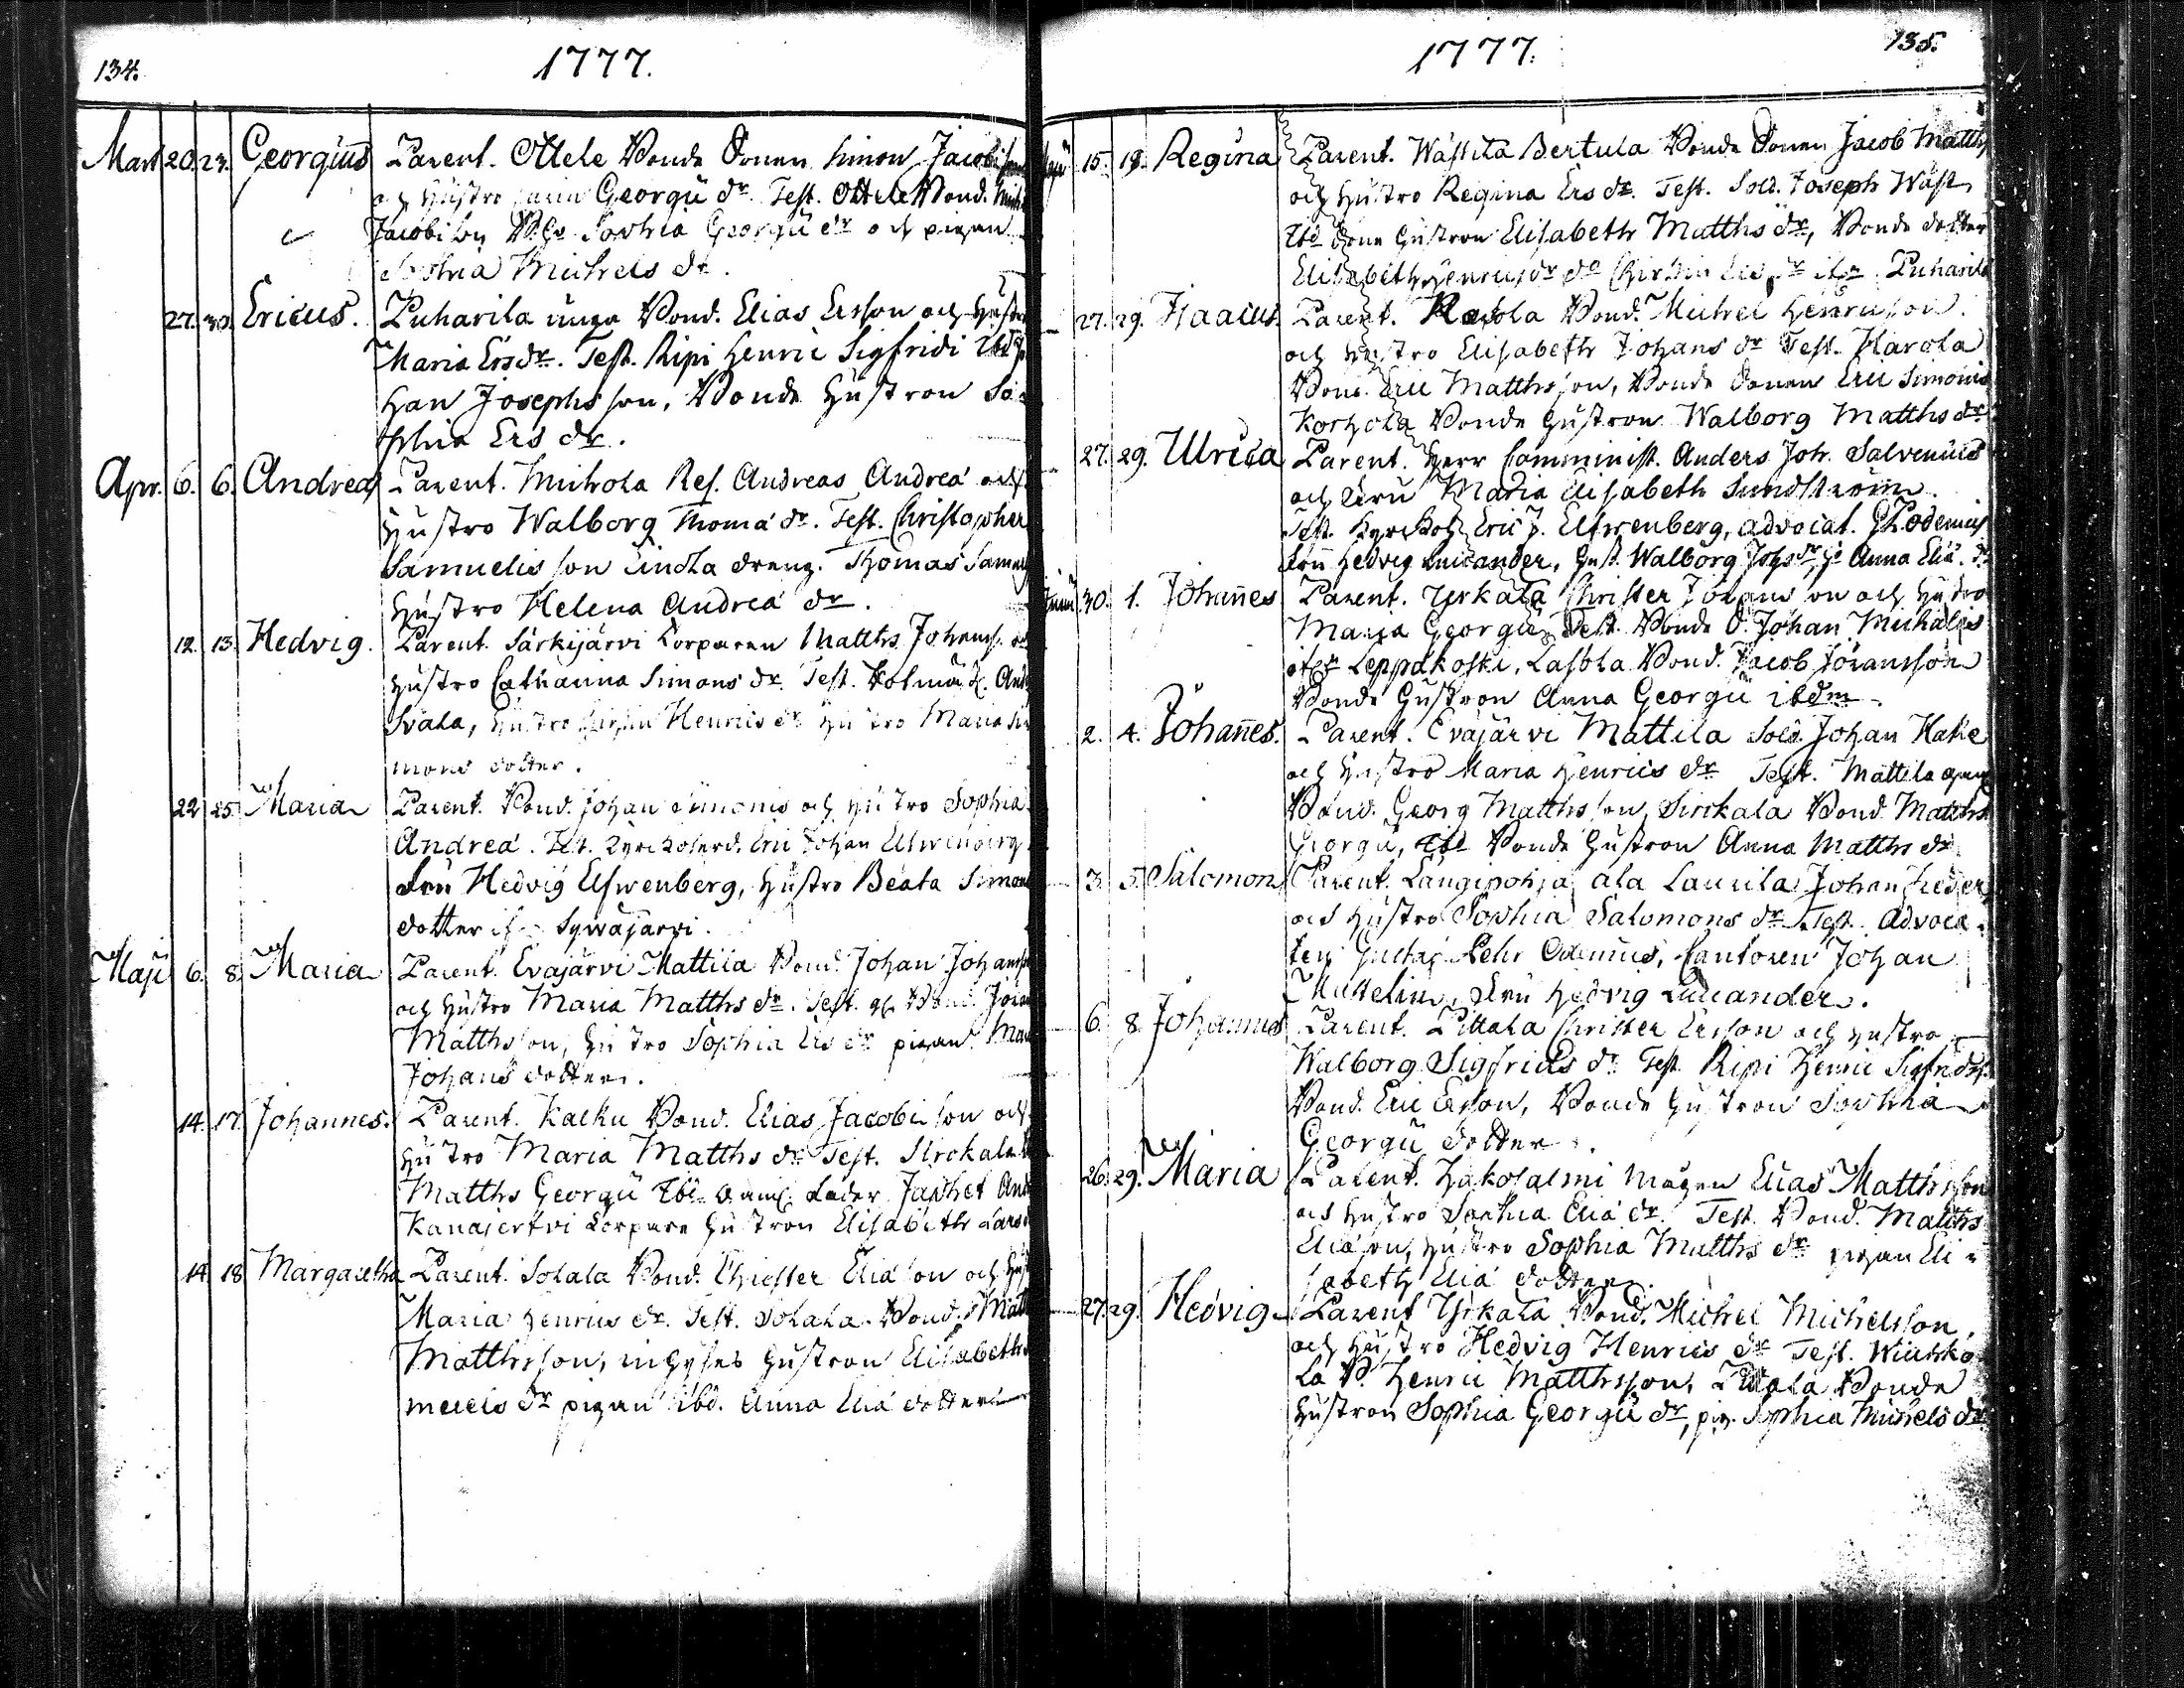 134.
1777.
Mart 20. 23. Georgius Parent. Ottele Bonde Sonen Simon Jacobi son
och Hustro Georgii dr. Test. Ottele Bond.
Jacobi son Sophia Georgii dr och pigan
Sophia Michels dr.
27. 30. Ericus. Puharila unga Bond. Elias Ersson och Hustro
Maria Ers dr. Test. Ripi Henric Sigfridi Ibd
han Josephs son, Bonde Hustron So=
phia Ers dr.
Apr. 6. 6. Andreas Parent. Michola Res. Andreas Andreæ och
Hustro Walborg Thomæ dr. Test. Christopher
Samuelis son dreng. Thomas
Hustro Helena Andreæ dr.
12. 13. Hedvig. Parent. Särkijärvi Torparen Matths Johanss. och
Hustro Catharina Simons dr. Test.
Hustro Henrics dr Hustro Maria Si
mons dotter.
22 25. Maria Parent. Bond. Johan Simonis och Hustro Sophia
Andreæ. Test. Eric Johan Elfwenberg
Fru Hedvig Elfwenberg, Hustro Beata Simons
dotter if. Sywäjärvi.
Maji 6. 8. Maria Parent. Evajärvi Mattila Bond. Johan Johansson
och Hustro Maria Matths dr. Test. Bond. Johan
Matths son, Hustro Sophia Ers dr pigan Maria
Johans dotter.
14. 17. Johannes. Parent. Kalku Bond. Elias Jacobi son och
Hustro Maria Matths dr Test. Sirckala
Matths Georgii Ibd. Japhet
Torpare Hustron Elisabeth Lars
14 18 Margaretha Parent. Solala Bond. Christer Eliæ son och Hustro
Maria Henrics dr. Test. Solala Bond. Matths
Matthsson, inhyses Hustron Elisabeth
dr pigan ibd. Anna Eliæ dotter
1777.
135.
Maji 15. 18. Regina Parent. Wästilä Bertula Bonde Sonen Jacob Matths
och Hustro Regina Ers dr. Test. Sold. Joseph Wäst
Ibd Hustron Elisabeth Matths dr, Bonde dotter
Elisabeth Henrics dr do Ers dr if. Puharila
27. 29. Isaacus. Parent. Rasola Bond. Michel Henricson
och Hustro Elisabeth Johans dr Test. Harola
Bond. Eric Matths son, Bonde Sonen Eric Simonis
Korhola Bonde Hustron Walborg Matths dr
27. 29. Ulrica Parent. Herr Comminist. Anders Joh. Salvenius
och Fru Maria Elisabeth Sundström.
Test. Eric J. Elfwenberg, advocat. G P Odenius
Fru Hedvig Lucander, Hust. Walborg Johs dr Anna Eliæ. dr
Junii 30. 1. Johannes Parent. Yrkälä Christer Johans son och Hustro
Maria Georgii Test. Bonde S. Johan Michaelis
if. Leppäkoski, Lasola Bond. Jacob Johansson
Bonde Hustron Anna Georgii ibdm
2. 4. Johannes. Parent. Evajärvi Mattila Sold. Johan Hake
och Hustro Maria Henrics dr Test. Mattila
Bond. Georg Matths son, Sirckala Bond. Matths
Georgii, Ibd Bonde Hustron Anna Matths dr
3. 5. Salomon Parent. Längipohja ala Laurila Johan
och Hustro Sophia Salomons dr Test. Advoca
ten Gustaf Pehr Odenius, Cantoren Johan
Mittelin, Fru Hedvig Lucander.
6. 8 Johannes Parent. Pittala Christer Ersson och Hustro
Walborg Sigfrids dr Test. Ripi Henric Sigfrids
Bond. Eric Ersson, Bonde Hustron Sophia
Georgii dotter.
26. 29. Maria Parent. Hakosalmi Mågen Elias Matthsson
och Hustro Sophia Eliæ dr. Test. Bond. Matths
Eliæ son, Hustro Sophia Matths dr pigan Eli=
sabeth Eliæ dotter.
27. 29. Hedvig Parent Yrkälä Bond. Michel Michelsson,
och Hustro Hedvig Henrics dr Test.
la B. Henric Matthsson, Pittala Bonde
Hustron Sophia Georgii dr, pig. Sophia Michels dr